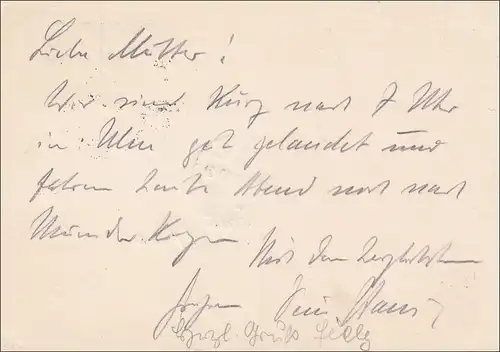 Liebe Mutter!
Wir sind kurz nach 7 Uhr
in Ulm gut gelandet und
fahren heute Abend noch nach
Mit den herzlichsten
Dein Hans
Herzl. Gruß